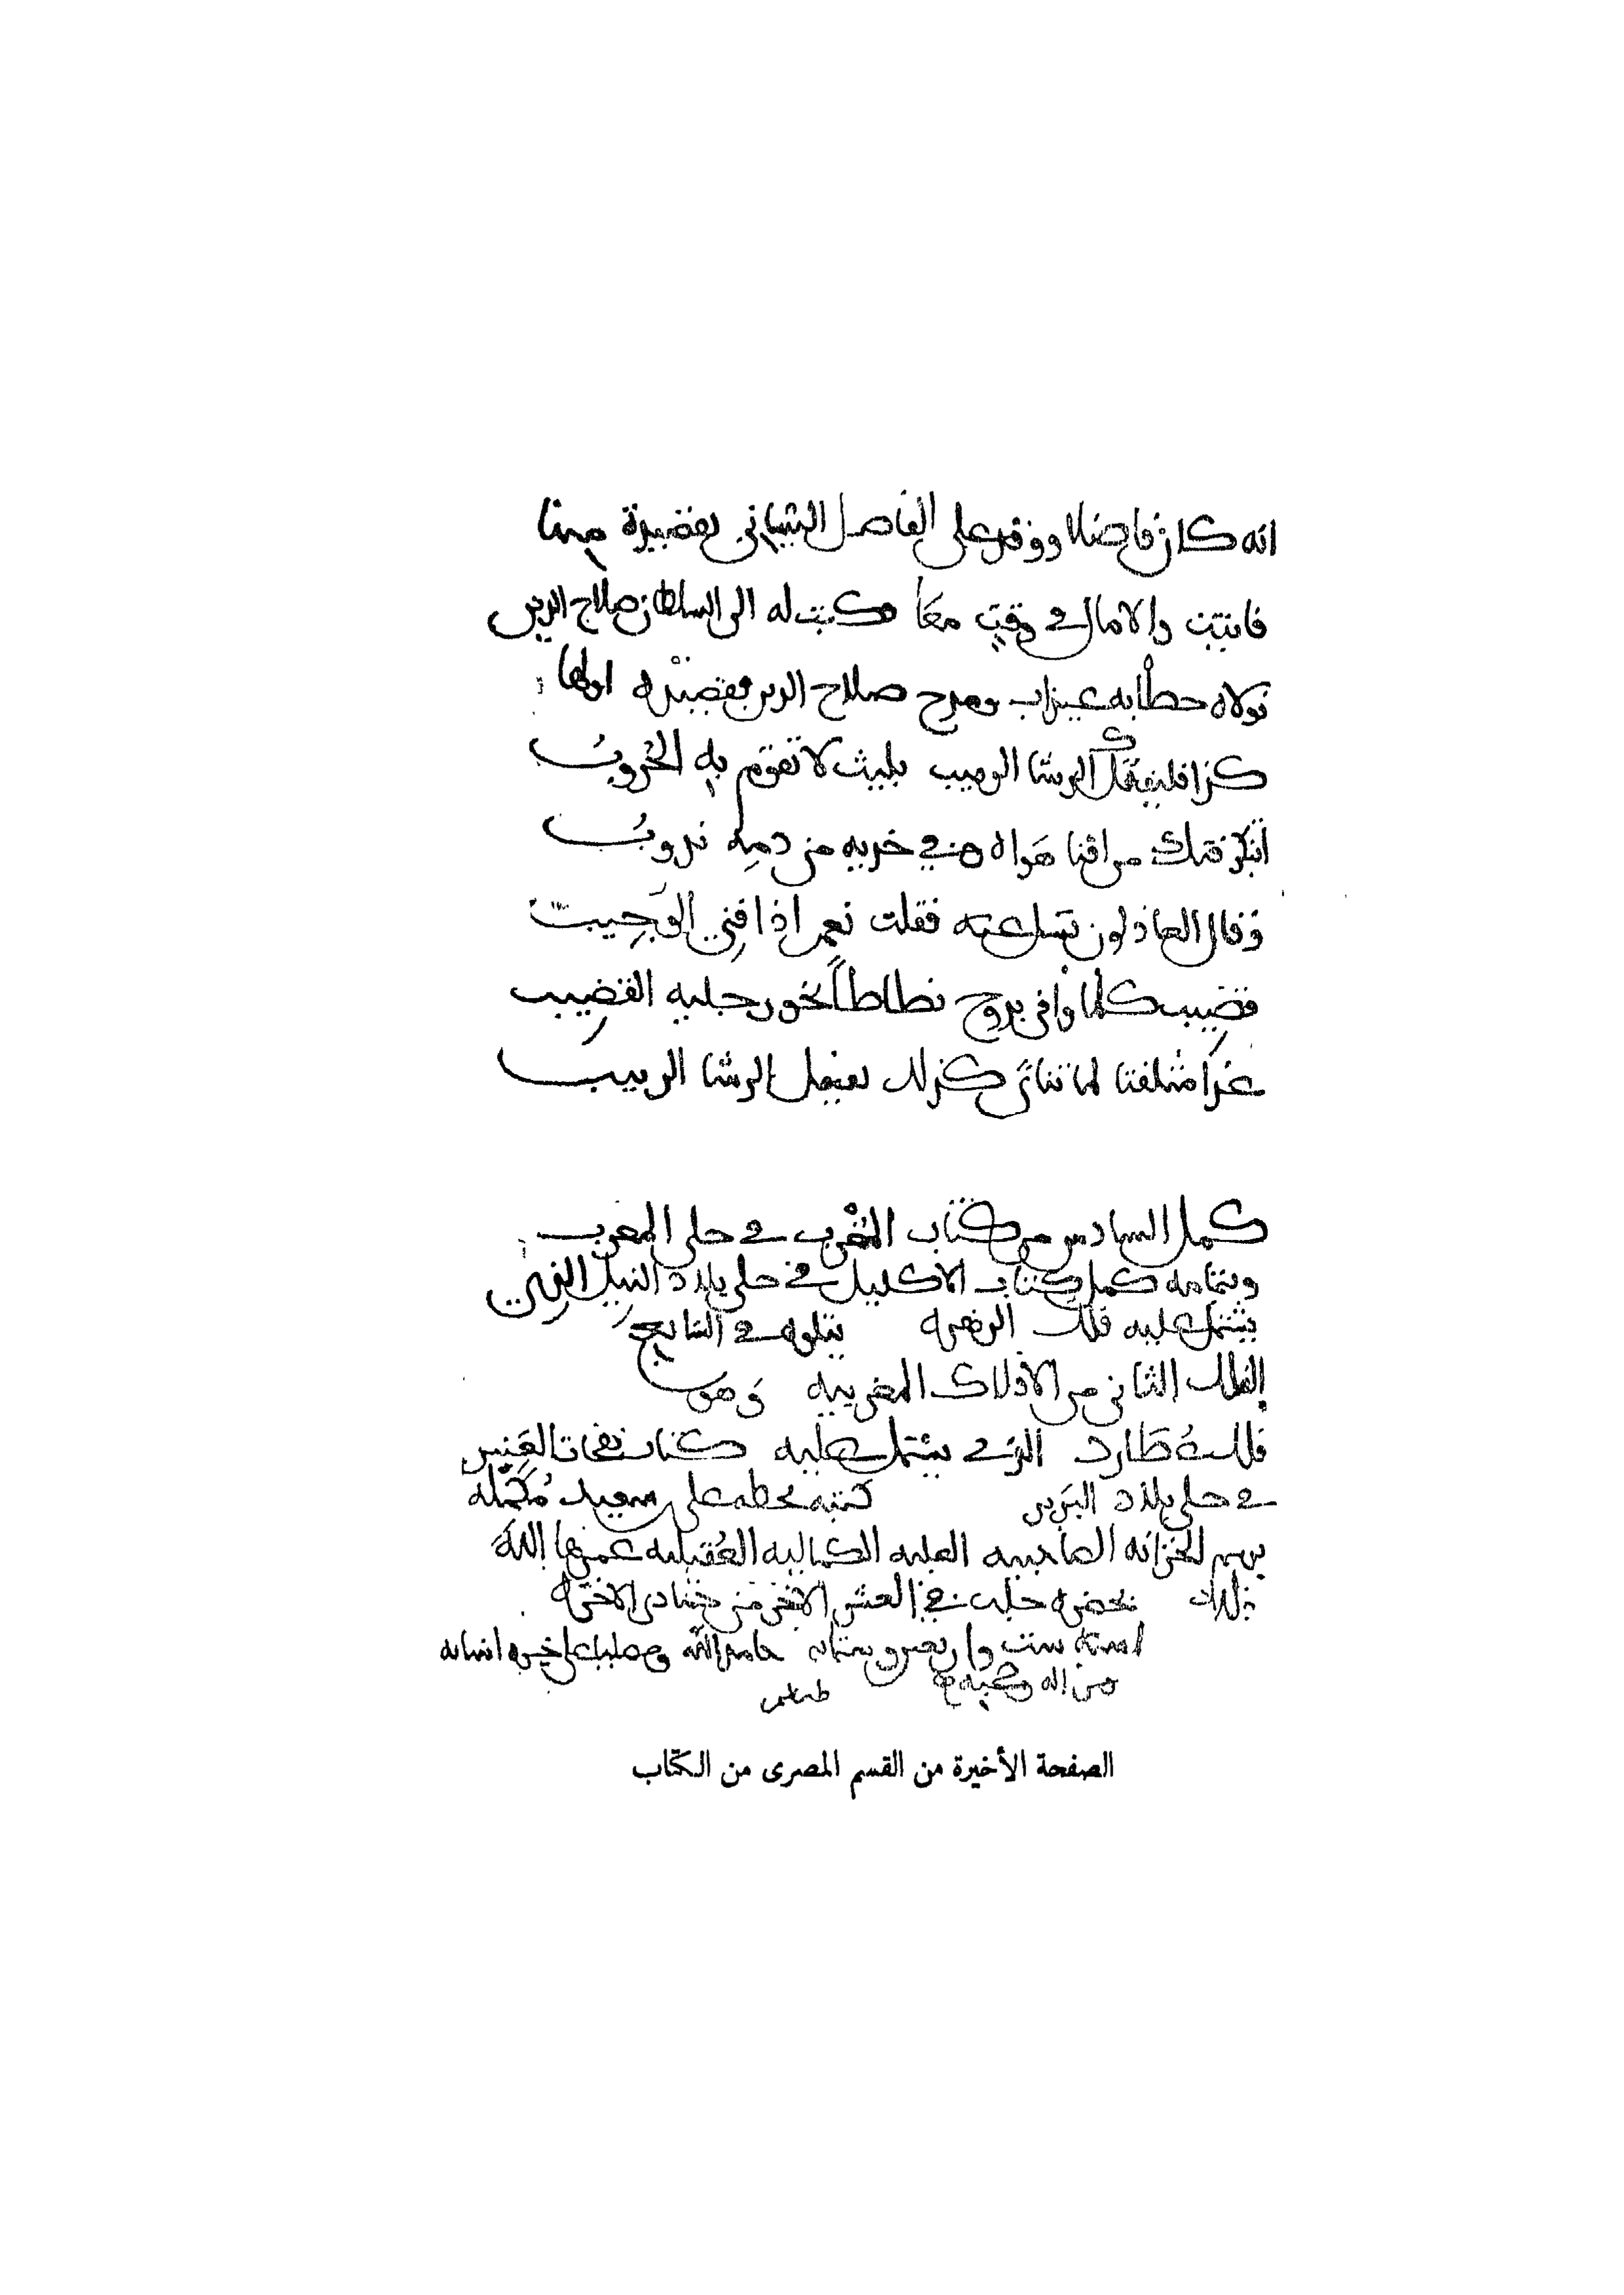 انه كان فاضلا ووفد على الفاضل البيساني بقصيدة منها
فاتيت والامال في وقت معا فكتب له الى السلطان صلاح الدين
فولاه خطابة عيذاب ومدح صلاح الدين بقصيدة اولها
كذا فليفتك الرشا الربيب بليث لا تقوم به الحروب
اتنكر فتك من افنا هواه وفي خديه من دمه ندوب
وقال العاذلون تسل عنه فقلت نعم اذا فني الوجيب
قضيب كلما وافى يروح تطاطا نحو رجليه القضيب
غزا مثلفتا لما تناءى كذلك يفعل الرشا الربيب
كمل السادس من كتاب المغرب في حلى المغرب
وبتمامه كمل كتاب الاكليل في حلى بلاد النيل الذي
يشتمل عليه فلك الزهرة يتلوه في السابع
الفلك الثاني من الافلاك المغربية وهو
فلك عطارد الذي يشتمل عليه كتاب نفحات العنبر
في حلى بلاد البربر كتبه بخطه علي بن سعيد مكمله
برسم الخزانة الصاحبية العلية الكمالية العقيلية عمرها الله
بذلك بحضرة حلب في العشر الاخر من جمادى الاخرة
سنة ست واربعين وستمائة حامدا لله ومصليا على خيرة انبيائه
من اله وصحبه
الصفحة الأخيرة من القسم المصرى من الكتاب